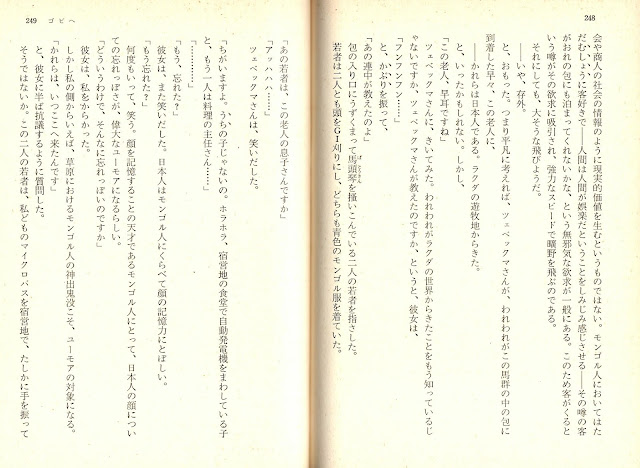 248
会や商人の社会の情報のように現実的価値を生むというものではない。モンゴル人においてはた
だむしょうに客好きで――人間は人間が娯楽だということをしみじみ感じさせる――その噂の客
がおれの包にも泊まってくれないかな、という無邪気な欲求が一般にある。このため客がくると
いう噂がその欲求に吸引され、強力なスピードで曠野を飛ぶのである。
それにしても、大そうな飛びようだ。
――いや、存外。
と、おもった。つまり平凡に考えれば、ツェベックマさんが、われわれがこの馬群の中の包に
到着した早々、この老人に、
――かれらは日本人である。ラクダの遊牧地からきた。
と、いったかもしれない。しかし、
「この老人、早耳ですね」
ツェベックマさんに、きいてみた。われわれがラクダの世界からきたことをもう知っているじ
ゃないですか、ツェベックマさんが教えたのですか、というと、彼女は、
「フンフンフン……」
と、かぶりを振って、
「あの連中が教えたのよ」
包の入り口にうずくまって馬頭琴を掻いこんでいる二人の若者を指さした。
若者は二人とも頭をGI刈りにし、どちらも青色のモンゴル服を着ていた。
249 ゴビへ
「あの若者は、この老人の息子さんですか」
「アッハハハ……」
ツェベックマさんは、笑いだした。
「ちがいますよ。うちの子じゃないの。ホラホラ、宿営地の食堂で自動発電機をまわしている子
と、もう一人は料理の主任さん……」
「…………」
「もう、忘れた?」
彼女は、また笑いだした。日本人はモンゴル人にくらべて顔の記憶力にとぼしい。
「もう忘れた?」
何度もいって、笑う。顔を記憶することの天才であるモンゴル人にとって、日本人の顔につい
ての忘れっぽさが、偉大なユーモアになるらしい。
「どういうわけで、そんなに忘れっぽいのですか」
彼女は、私をからかった。
しかし私の側からいえば、草原におけるモンゴル人の神出鬼没こそ、ユーモアの対象になる。
「かれらは、いつここへ来たんです」
と、彼女に半ば抗議するように質問した。
そうではないか。この二人の若者は、私どものマイクロバスを宿営地で、たしかに手を振って